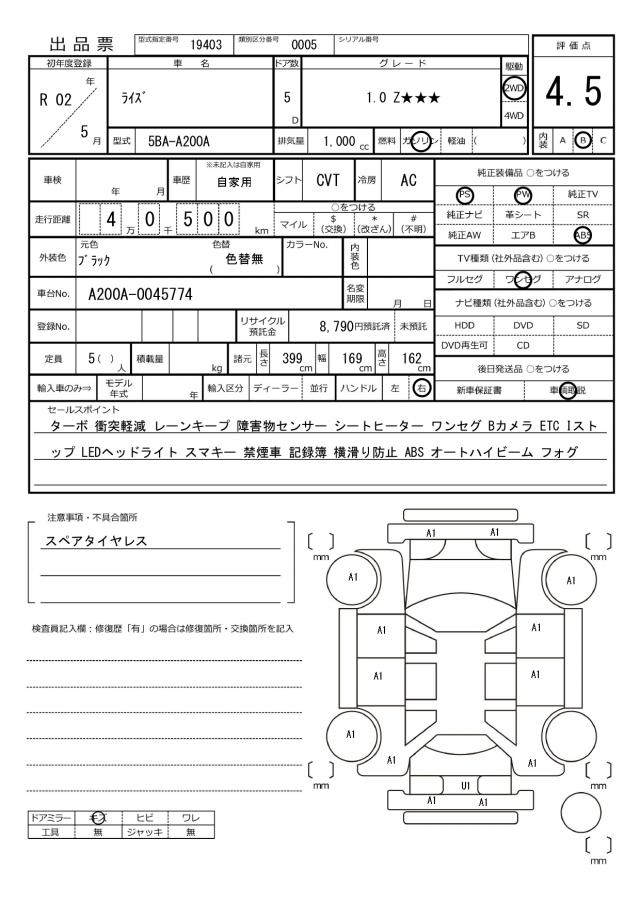 出品票 型式指定番号 19403 類別区分番号 0005 シリアル番号
初年度登録 車名 ドア数 グレード 駆動 評価点
R 02 年 ﾗｲｽﾞ 5 D 1.0 Z★★★ 2WD 4WD 4.5
5 月 型式 5BA-A200A 排気量 1,000 cc 燃料 ガソリン 軽油 ( ) 内装 A B C
車検 年 月 車歴 ※未記入は自家用 自家用 シフト CVT 冷房 AC 純正装備品 ○をつける
PS PW 純正TV
走行距離 4 万 0 千 5 0 0 km ○をつける マイル $ (交換) * (改ざん) # (不明) 純正ナビ 革シート SR
純正AW エアB ABS
外装色 元色 ﾌﾞﾗｯｸ 色替 ( 色替無 ) カラーNo. 内装色 TV種類 (社外品含む) ○をつける
フルセグ ワンセグ アナログ
車台No. A200A-0045774 名変期限 月 日 ナビ種類 (社外品含む) ○をつける
登録No. リサイクル預託金 8,790円預託済 未預託 HDD DVD SD
DVD再生可 CD
定員 5 ( ) 人 積載量 kg 諸元 長さ 399 cm 幅 169 cm 高さ 162 cm 後日発送品 ○をつける
輸入車のみ⇒ モデル年式 年 輸入区分 ディーラー 並行 ハンドル 左 右 新車保証書 車輌取説
セールスポイント
ターボ 衝突軽減 レーンキープ 障害物センサー シートヒーター ワンセグ Bカメラ ETC Iスト
ップ LEDヘッドライト スマキー 禁煙車 記録簿 横滑り防止 ABS オートハイビーム フォグ
注意事項・不具合箇所
スペアタイヤレス
検査員記入欄：修復歴「有」の場合は修復箇所・交換箇所を記入
A1 A1
mm mm
A1 A1
A1 A1
A1 A1
A1
A1 A1
mm U1 mm
A1 A1
mm
ドアミラー キズ ヒビ ワレ
工具 無 ジャッキ 無